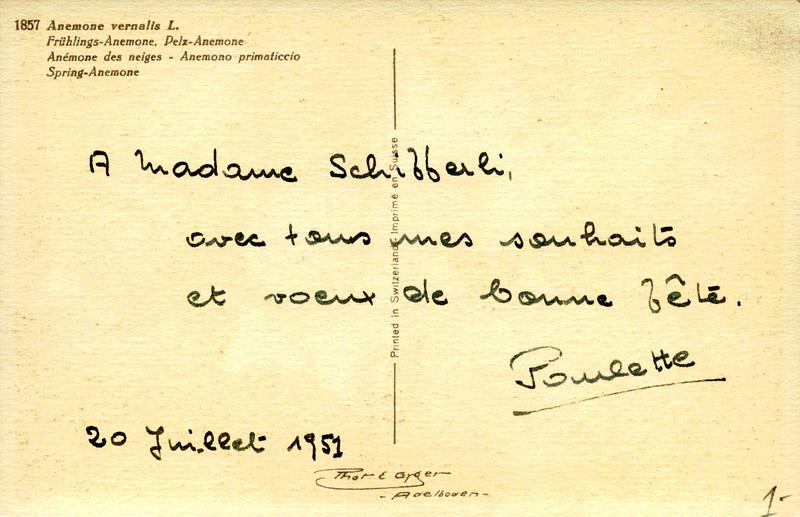 1857 Anemone vernalis L.
Frühlings-Anemone, Pelz-Anemone
Anémone des neiges - Anemono primaticcio
Spring-Anemone
A Madame Schifferli,
avec tous mes souhaits
et voeux de bonne fête.
Poulette
20 Juillet 1951
Printed in Switzerland Imprimé en Suisse
Phot E Gyger
- Adelboden -
1-